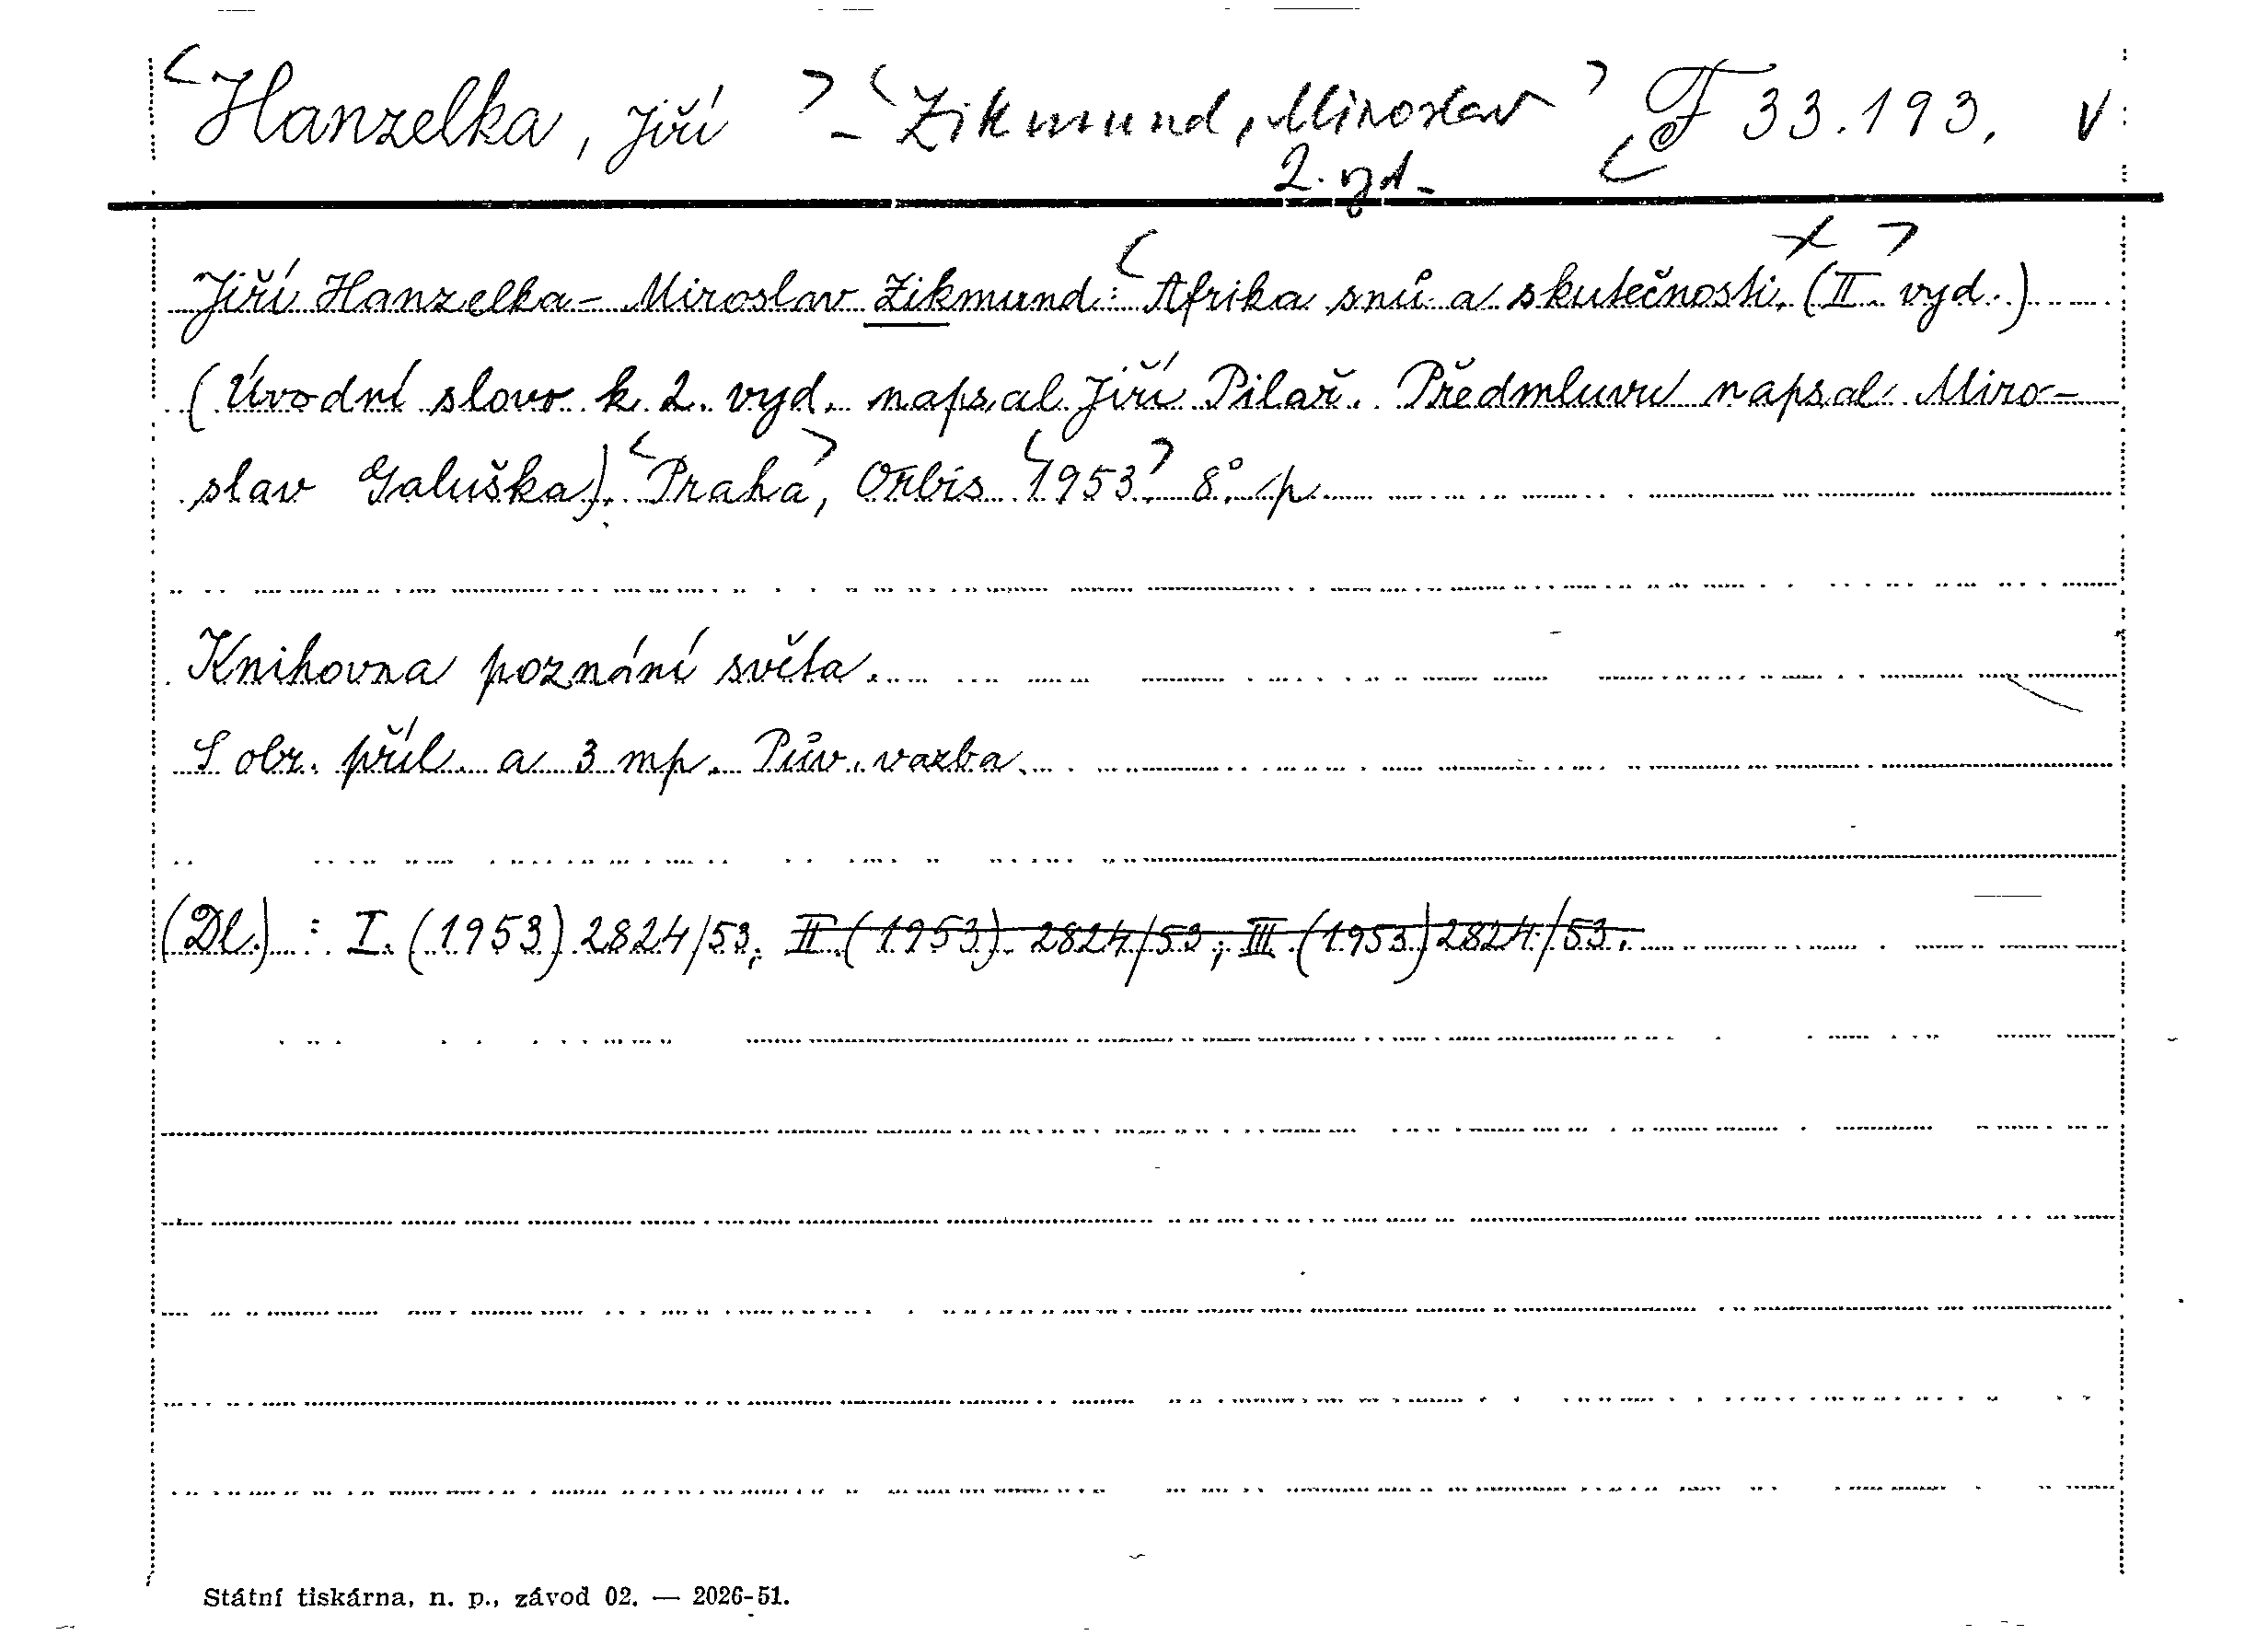 Hanzelka, Jiří - Zikmund, Miroslav F 33.193. V
2. vyd.
Jiří Hanzelka - Miroslav Zikmund: Afrika snů a skutečnosti. (II. vyd.)
(Úvodní slovo k 2. vyd. napsal Jiří Pilař. Předmluvu napsal Miro-
slav Galuška). Praha, Orbis 1953. 8° p
Knihovna poznání světa.
S obr. příl. a 3 mp. Pův. vazba.
(Dl.) : I. (1953) 2824/53; II. (1953) 2824/53; III. (1953) 2824/53.
Státní tiskárna, n. p., závod 02. — 2026-51.